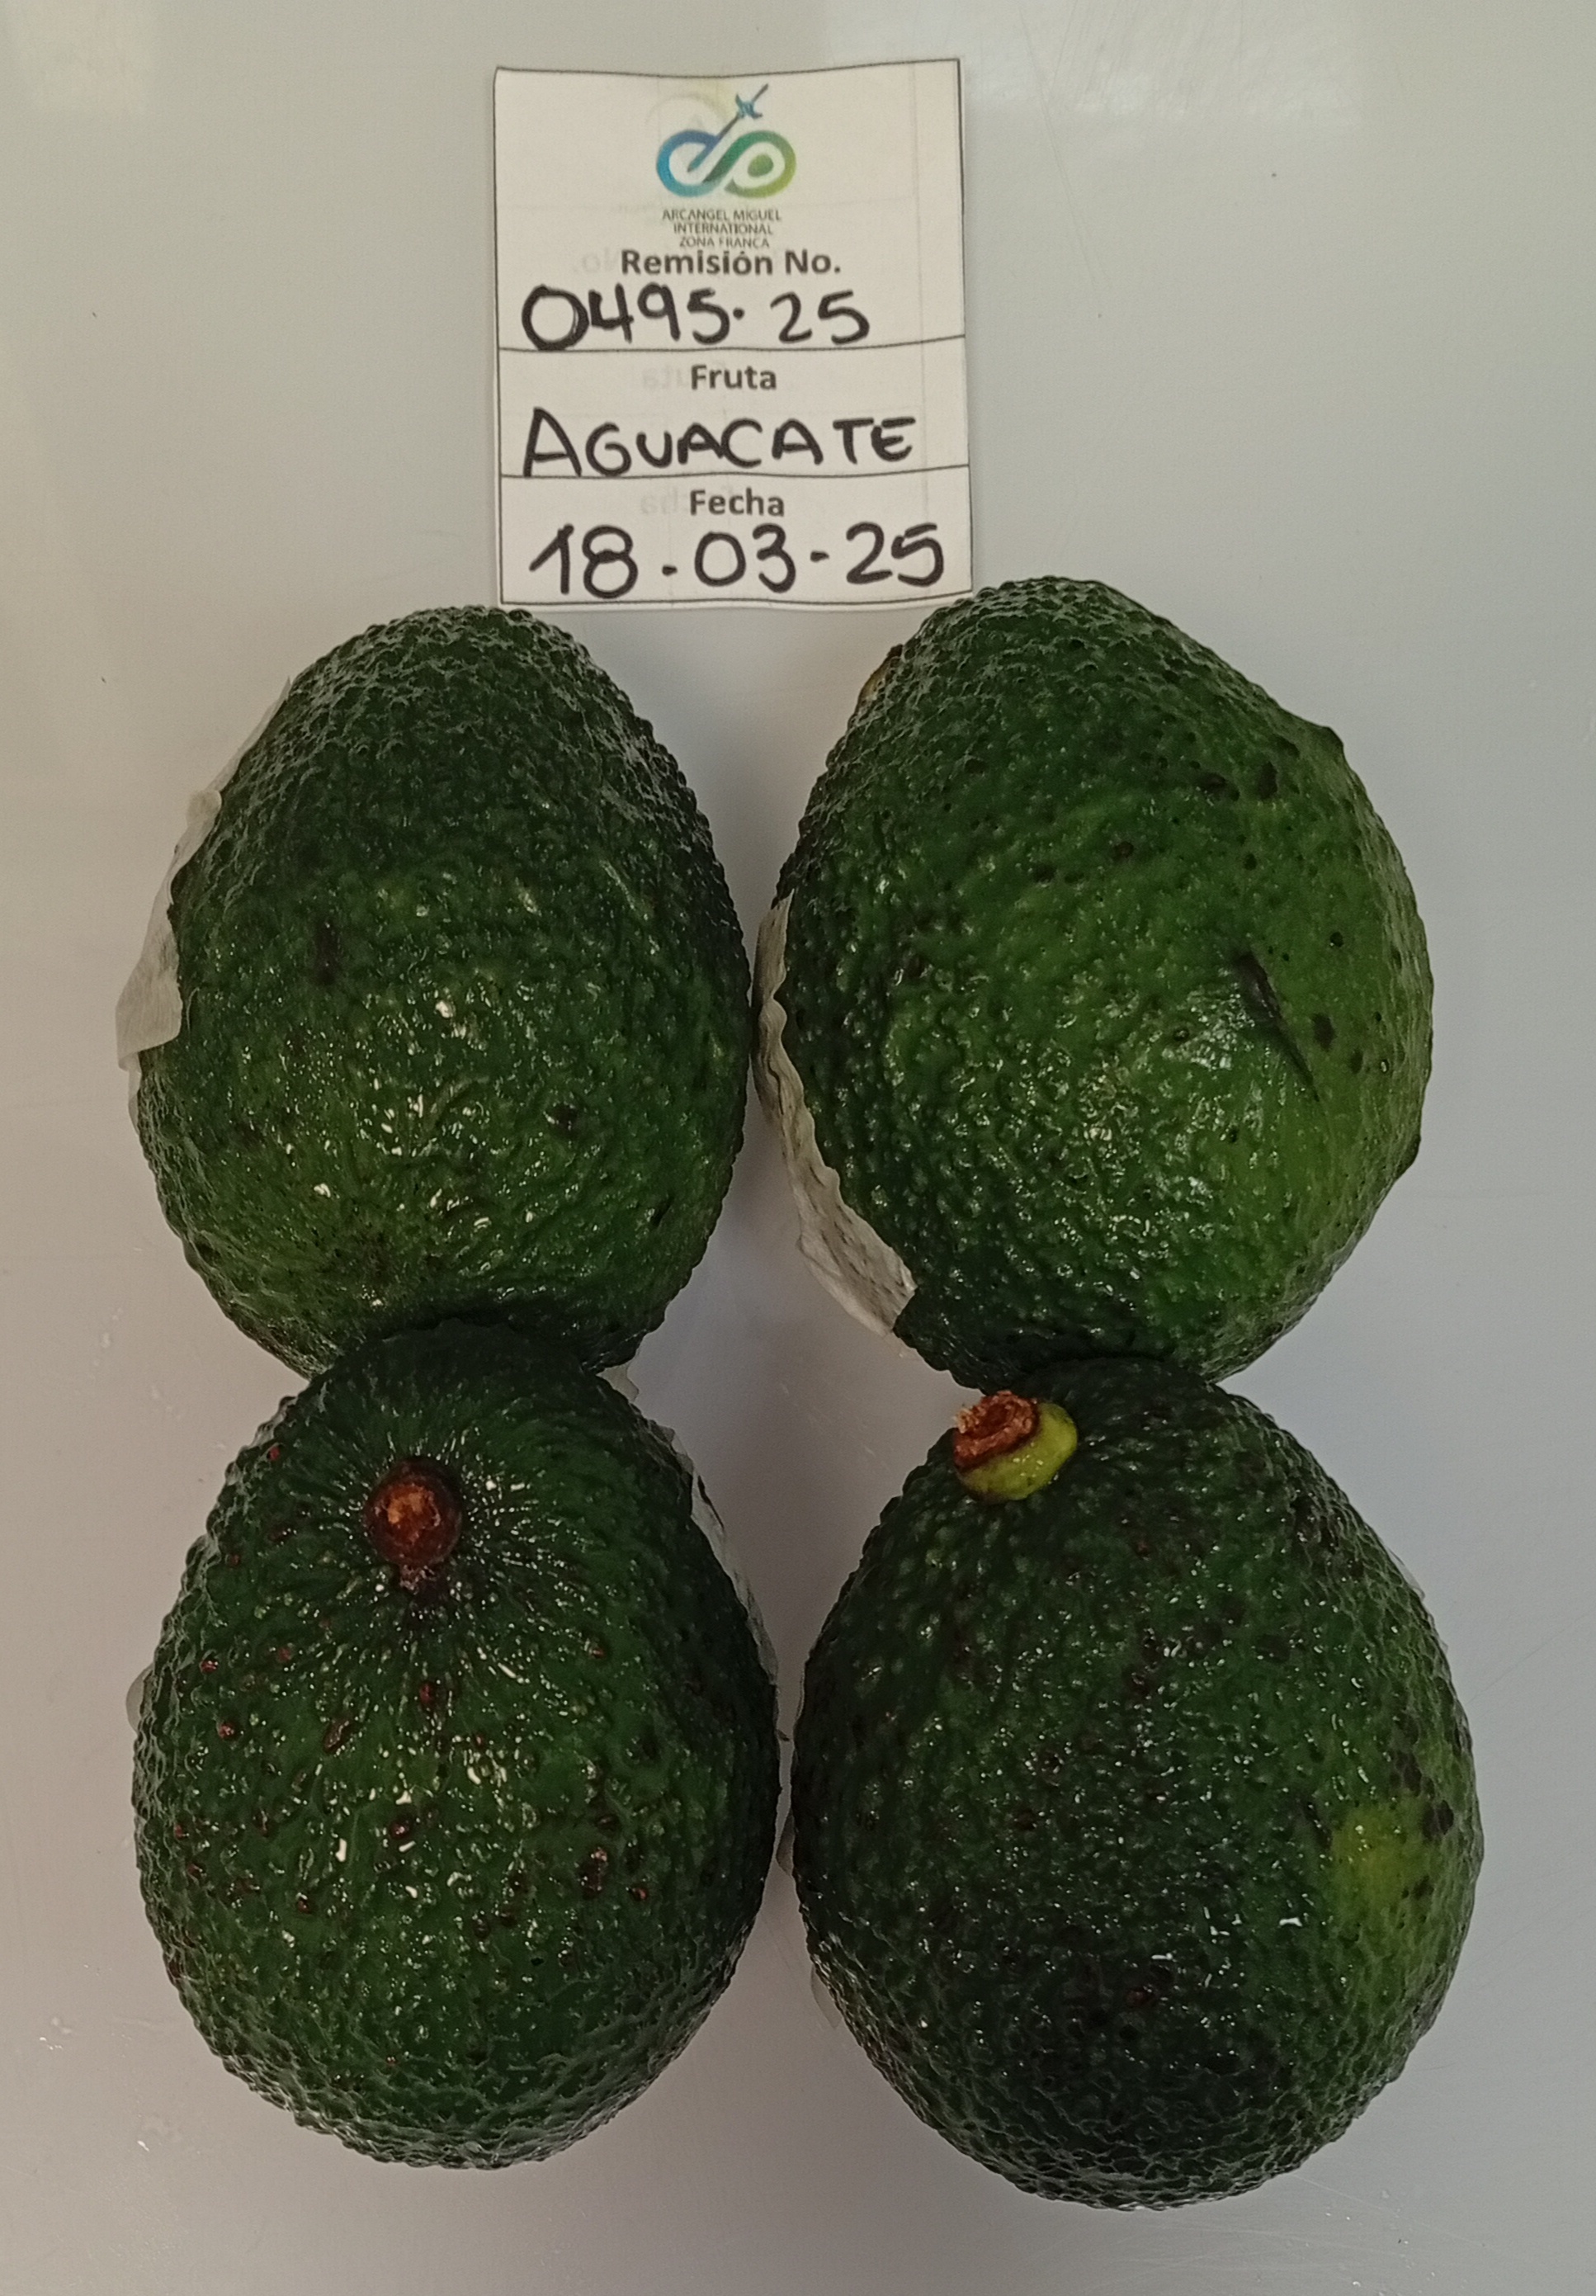 ARCANGEL MIGUEL
INTERNATIONAL
ZONA FRANCA
Remisión No.
0495-25
Fruta
AGUACATE
Fecha
18-03-25